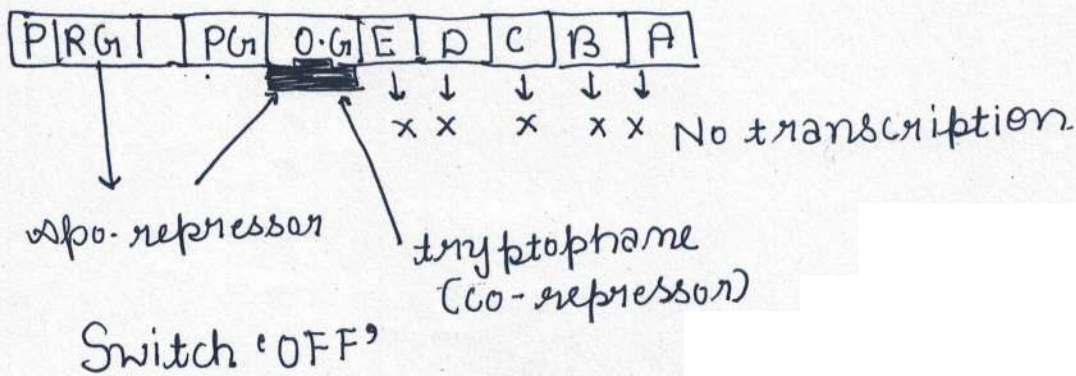 P RG PG O.G E D C B A
x x x x x No transcription
apo-repressor
tryptophane
(co-repressor)
Switch 'OFF'